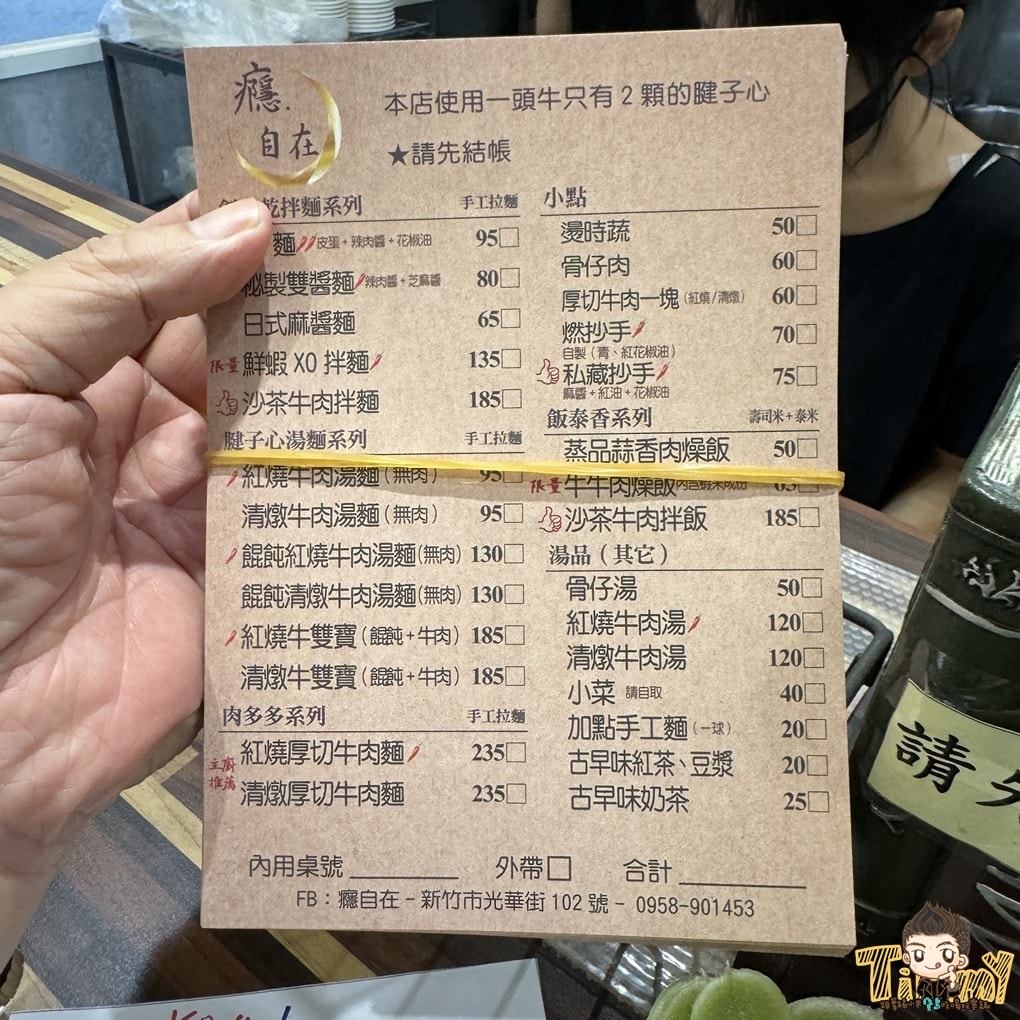 癮.
自在
本店使用一頭牛只有2顆的腱子心
★請先結帳
乾拌麵系列 手工拉麵
麵 皮蛋+辣肉醬+花椒油 95□
秘製雙醬麵 辣肉醬+芝麻醬 80□
日式麻醬麵 65□
限量 鮮蝦XO拌麵 135□
沙茶牛肉拌麵 185□
腱子心湯麵系列 手工拉麵
紅燒牛肉湯麵(無肉) 95□
清燉牛肉湯麵(無肉) 95□
餛飩紅燒牛肉湯麵(無肉) 130□
餛飩清燉牛肉湯麵(無肉) 130□
紅燒牛雙寶(餛飩+牛肉) 185□
清燉牛雙寶(餛飩+牛肉) 185□
肉多多系列 手工拉麵
主廚推薦
紅燒厚切牛肉麵 235□
清燉厚切牛肉麵 235□
小點
燙時蔬 50□
骨仔肉 60□
厚切牛肉一塊(紅燒/清燉) 60□
燃抄手 70□
自製(青、紅花椒油)
私藏抄手 75□
麻醬+紅油+花椒油
飯泰香系列 壽司米+泰米
蒸品蒜香肉燥飯 50□
限量 牛牛肉燥飯 內含蝦米成份 65□
沙茶牛肉拌飯 185□
湯品(其它)
骨仔湯 50□
紅燒牛肉湯 120□
清燉牛肉湯 120□
小菜 請自取 40□
加點手工麵(一球) 20□
古早味紅茶、豆漿 20□
古早味奶茶 25□
內用桌號______ 外帶□ 合計________
FB:癮自在-新竹市光華街102號- 0958-901453
請先
Timmy